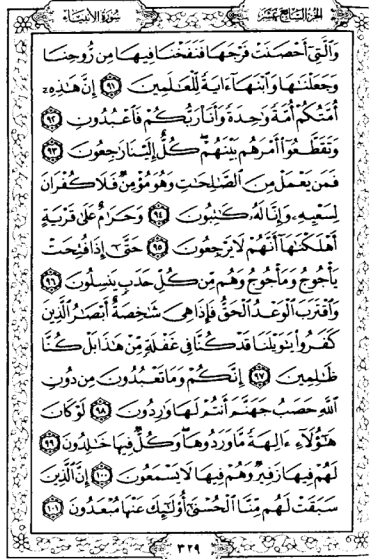 الجزء السابع عشر
سورة الأنبياء
وَٱلَّتِىٓ أَحْصَنَتْ فَرْجَهَا فَنَفَخْنَا فِيهَا مِن رُّوحِنَا
وَجَعَلْنَٰهَا وَٱبْنَهَآ ءَايَةً لِّلْعَٰلَمِينَ ٩١ إِنَّ هَٰذِهِۦٓ
أُمَّتُكُمْ أُمَّةً وَٰحِدَةً وَأَنَا۠ رَبُّكُمْ فَٱعْبُدُونِ ٩٢
وَتَقَطَّعُوٓا۟ أَمْرَهُم بَيْنَهُمْ ۖ كُلٌّ إِلَيْنَا رَٰجِعُونَ ٩٣
فَمَن يَعْمَلْ مِنَ ٱلصَّٰلِحَٰتِ وَهُوَ مُؤْمِنٌ فَلَا كُفْرَانَ
لِسَعْيِهِۦ وَإِنَّا لَهُۥ كَٰتِبُونَ ٩٤ وَحَرَٰمٌ عَلَىٰ قَرْيَةٍ
أَهْلَكْنَٰهَآ أَنَّهُمْ لَا يَرْجِعُونَ ٩٥ حَتَّىٰٓ إِذَا فُتِحَتْ
يَأْجُوجُ وَمَأْجُوجُ وَهُم مِّن كُلِّ حَدَبٍ يَنسِلُونَ ٩٦
وَٱقْتَرَبَ ٱلْوَعْدُ ٱلْحَقُّ فَإِذَا هِىَ شَٰخِصَةٌ أَبْصَٰرُ ٱلَّذِينَ
كَفَرُوا۟ يَٰوَيْلَنَا قَدْ كُنَّا فِى غَفْلَةٍ مِّنْ هَٰذَا بَلْ كُنَّا
ظَٰلِمِينَ ٩٧ إِنَّكُمْ وَمَا تَعْبُدُونَ مِن دُونِ
ٱللَّهِ حَصَبُ جَهَنَّمَ أَنتُمْ لَهَا وَٰرِدُونَ ٩٨ لَوْ كَانَ
هَٰٓؤُلَآءِ ءَالِهَةً مَّا وَرَدُوهَا ۖ وَكُلٌّ فِيهَا خَٰلِدُونَ ٩٩
لَهُمْ فِيهَا زَفِيرٌ وَهُمْ فِيهَا لَا يَسْمَعُونَ ١٠٠ إِنَّ ٱلَّذِينَ
سَبَقَتْ لَهُم مِّنَّا ٱلْحُسْنَىٰٓ أُو۟لَٰٓئِكَ عَنْهَا مُبْعَدُونَ ١٠١
٣٢٩